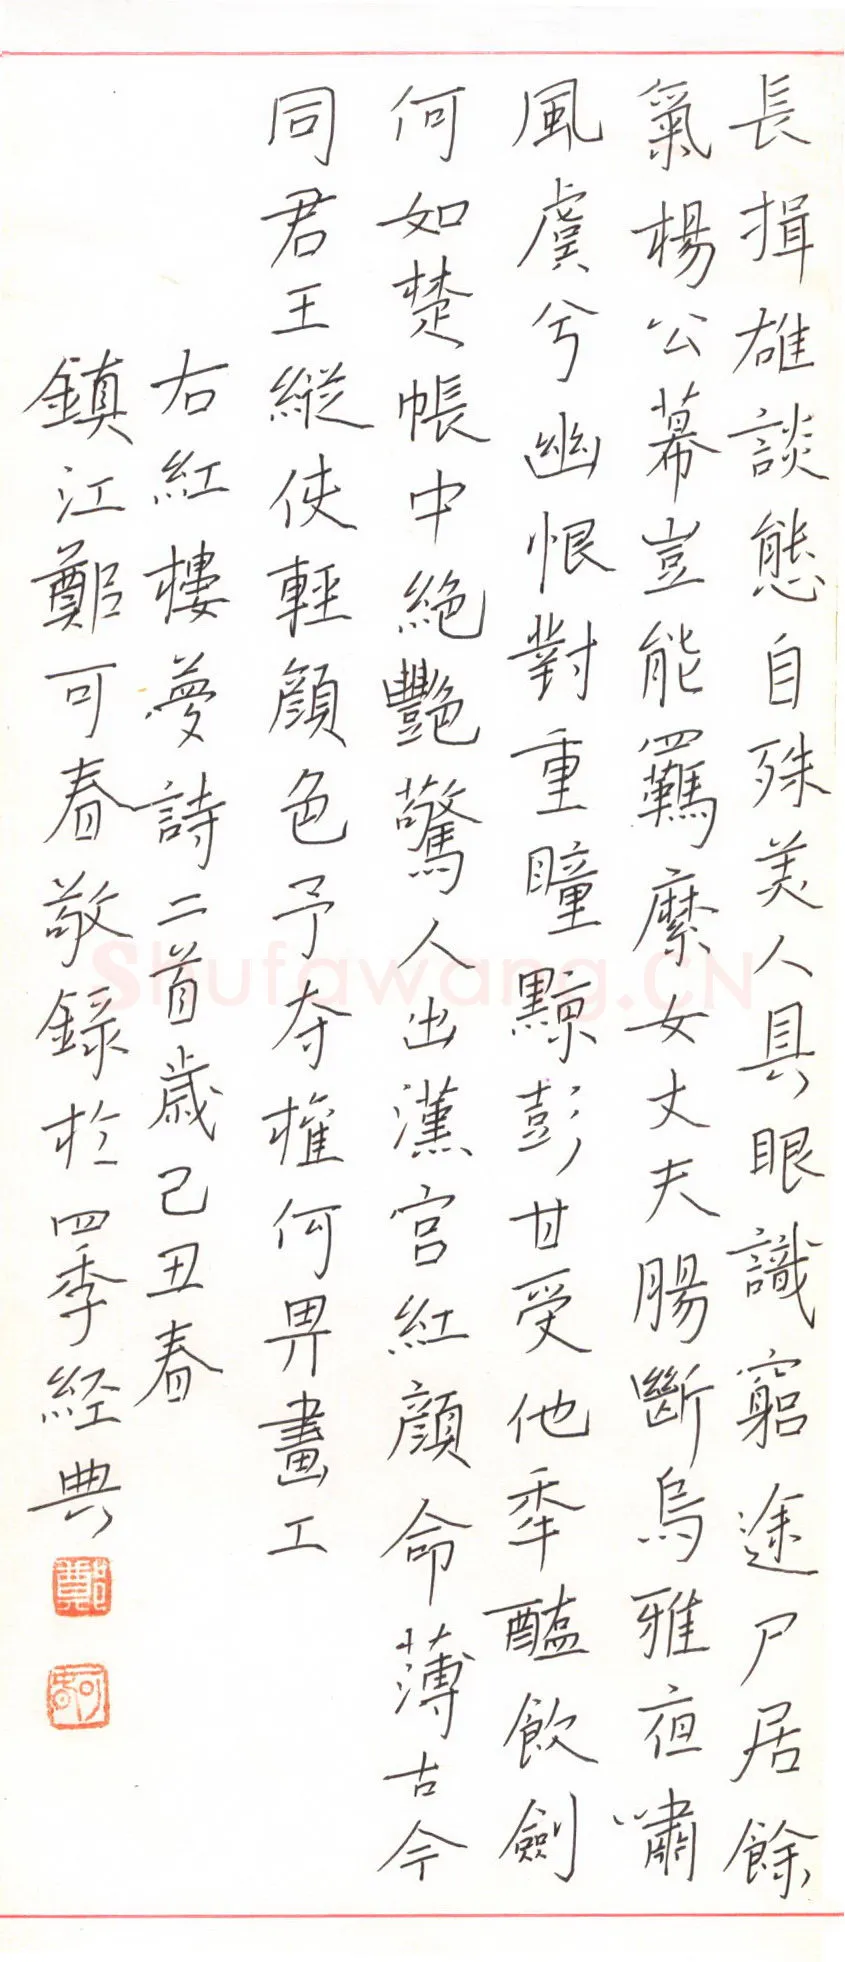 長揖雄談態自殊美人具眼識窮途尸居餘
氣楊公幕豈能羈縻女丈夫腸斷烏騅夜嘯
風虞兮幽恨對重瞳黥彭甘受他年醢飲劍
何如楚帳中絕艷驚人出漢宮紅顏命薄古今
同君王縱使輕顏色予奪權何畀畫工
右紅樓夢詩二首歲己丑春
鎮江鄭可春敬錄於四季経典
鄭
可春
Shufawang.CN